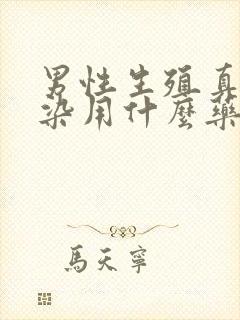 男性生殖真
染用什麼藥
馬天寧